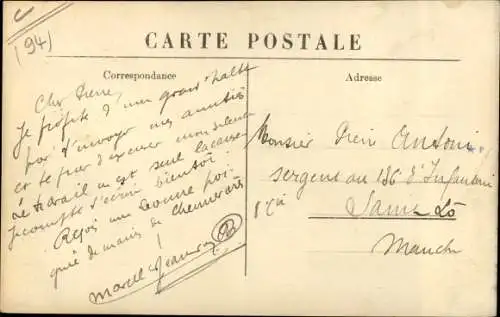 (94)
CARTE POSTALE
Correspondance
Adresse
Cher Pierre,
Je profite d'une grand'halte
pour t'envoyer mes amitiés
et te prier d'excuser mon silence
Le travail en est seul la cause
Je compte t'écrire bientôt.
Reçois une bonne poi-
gnée de mains de
Marcel
Monsieur Antoni
sergent au 136 d'Infanterie
Saint-Lô
Manche